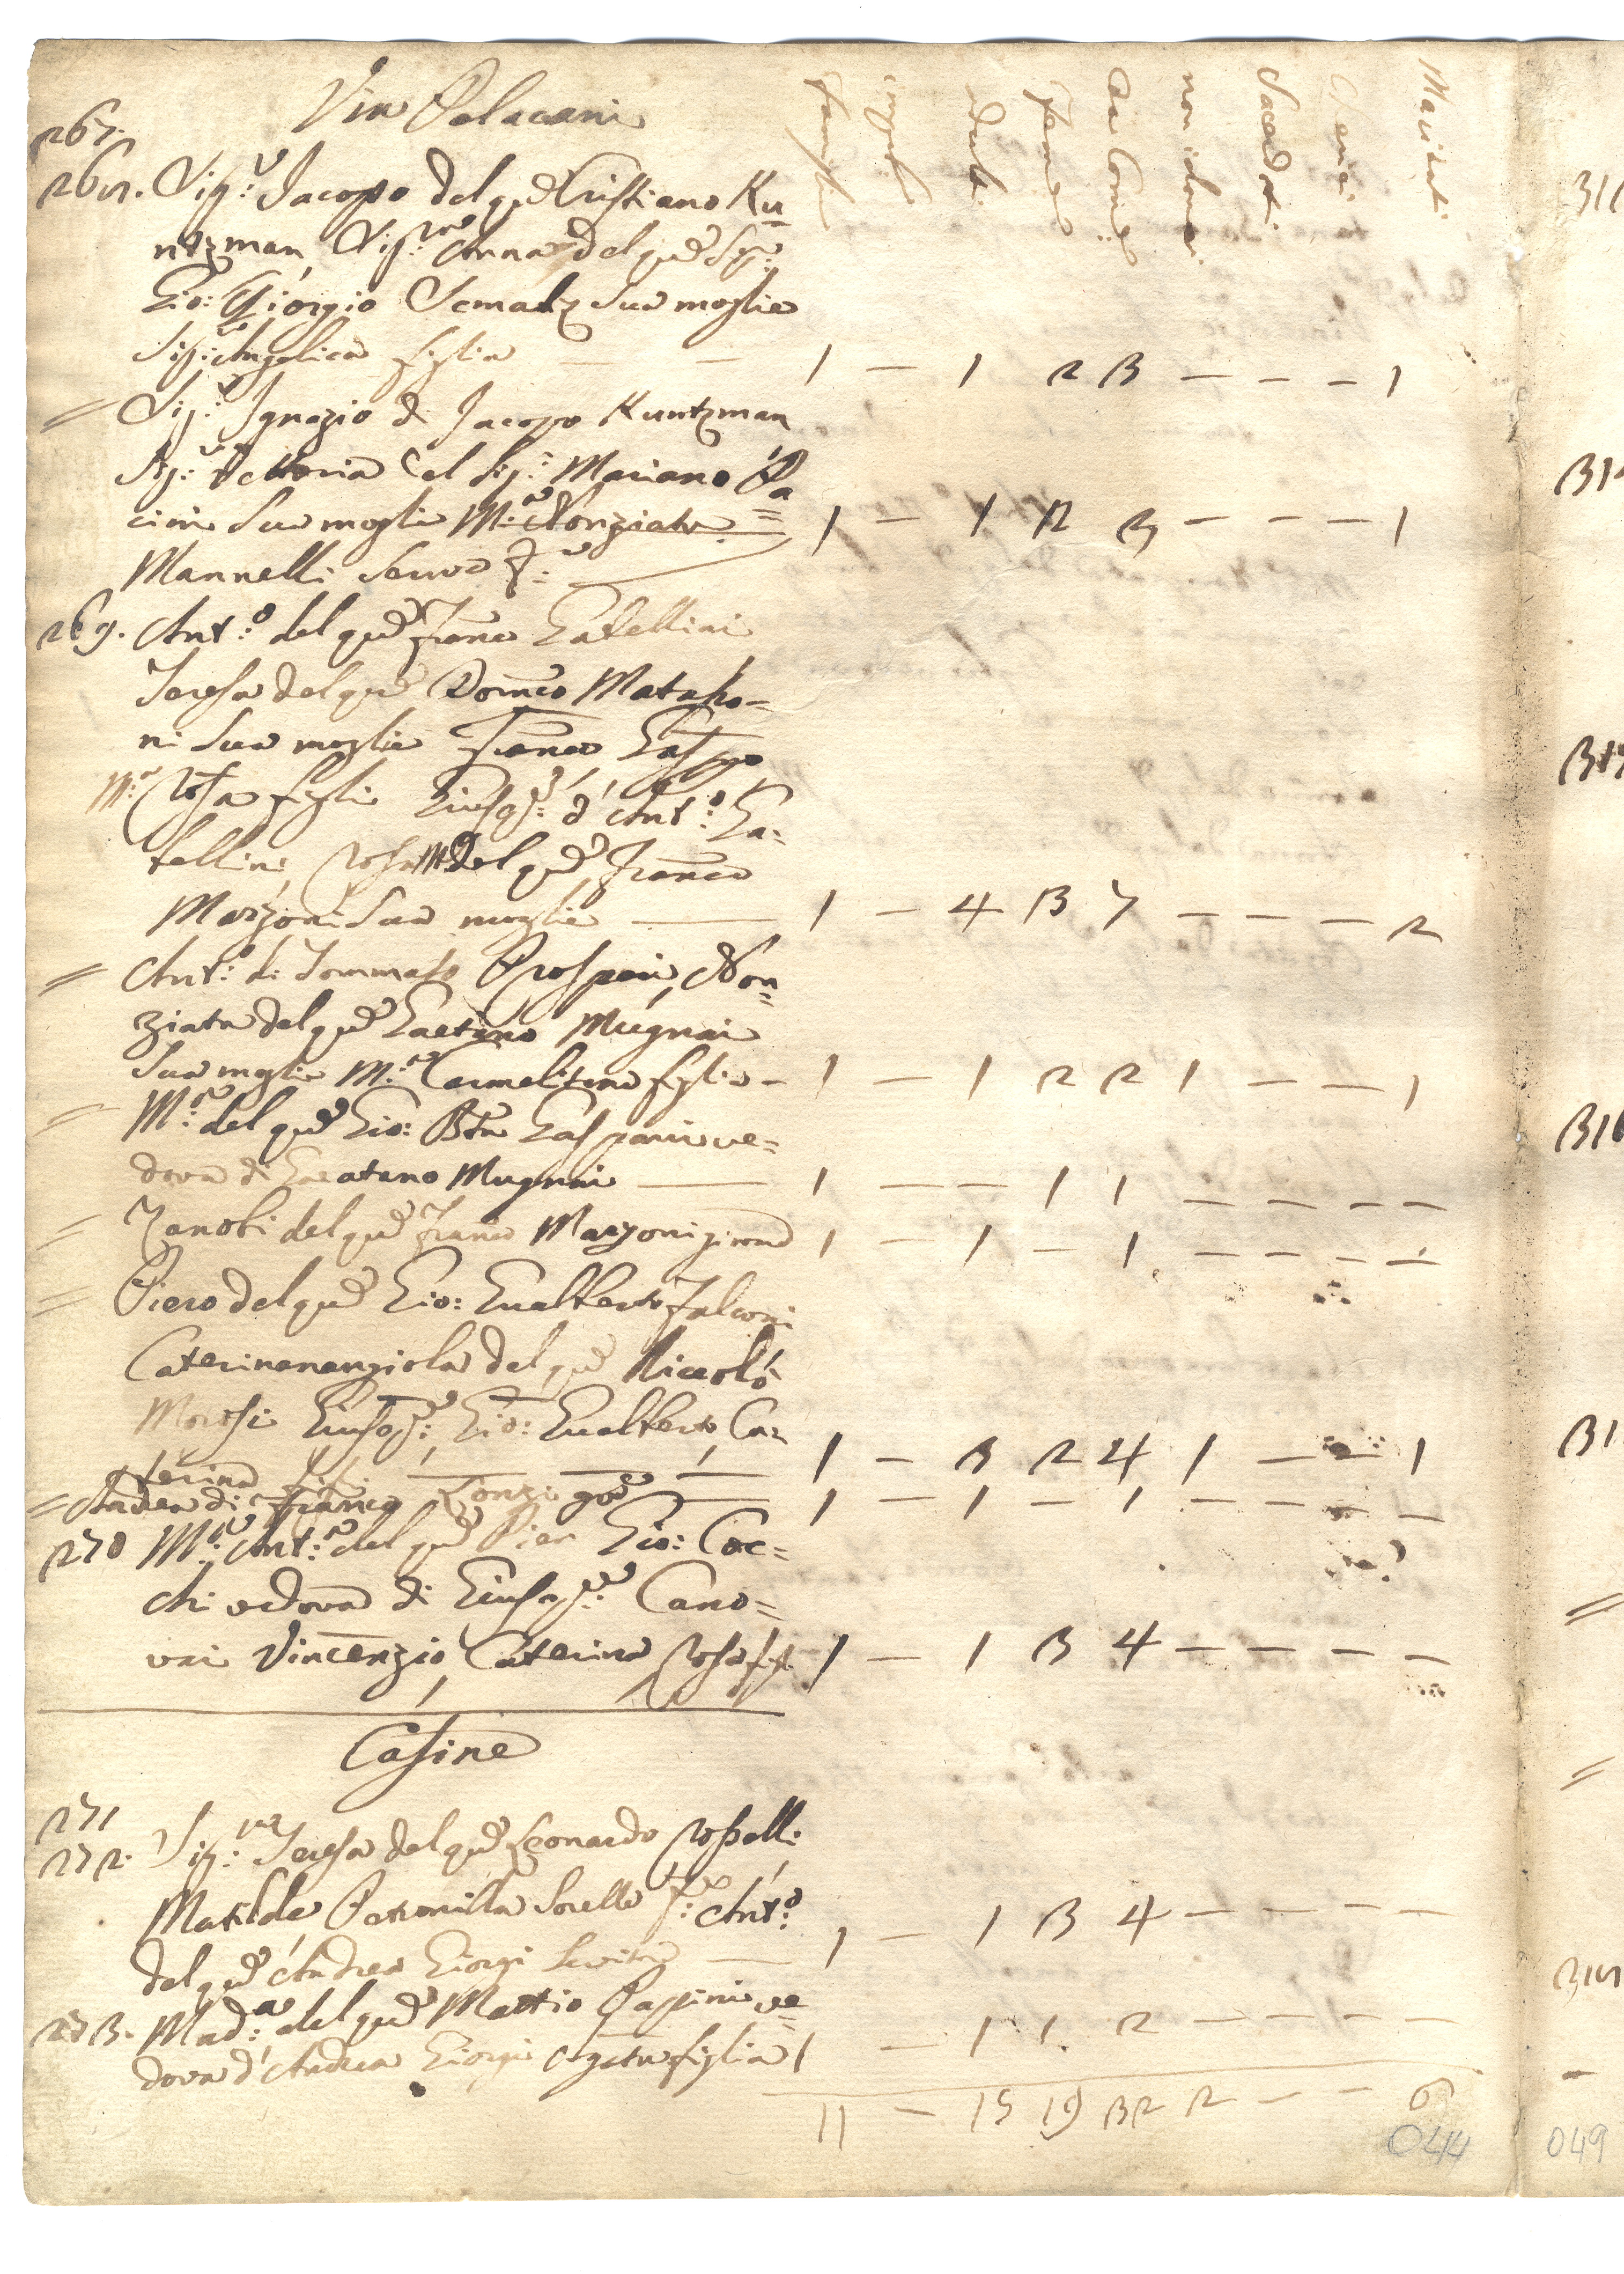 Via Pelacani
Famiglie
impub.
Adulti
Femine
Da Comu.
non idonei
Sacerdoti
Cherici
Maritati
267.
268. Sig.r Jacopo del qu Cristiano Ku=
ntzman, Sig.ra Anna del qu Sig.
Gio: Giorgio Scmalz Sua moglie
Sig.a Angelica figlia — — 1 — 1 2 3 — — — 1
= Sig.r Ignazio di Jacopo Kuntzman
Sig.ra Vettoria del Sig.r Mariano Pa=
cini Sua moglie M.a Nonziata 1 — 1 2 3 — — — 1
Mannelli Serva
269. Ant.o del qu Franco Gatellini
Teresa del qu Domco Mataso=
ni Sua moglie Franco Gaspo
M.a Rosa figli Giusep.e d'Ant.o Ga=
tellini, Rosa M.a del qu Franco
Marzoni Sua moglie — 1 — 4 3 7 — — — 2
= Ant.o di Tommaso Prosperi, Non=
ziata del qu Gaetano Mugnai
Sua moglie M.a Carmelitana figlia — 1 — 1 2 2 1 — — 1
= M.a del qu Gio: Bta Gaspari ve=
dova di Gaeatano Mugnai — 1 — — 1 1 — — — —
= Zanobi del qu Franco Marzoni giovane 1 — 1 — 1 — — — —
= Piero del qu Gio: Gualberto Falconi
Caterinanangiola del qu Niccolò
Morosi Giusep.e Gio: Gualberto Ca=
terina figli — — — 1 — 3 2 4 1 — — 1
= Andrea di Franco Lonzi gove — 1 — 1 — 1 — — — —
270 M.a Ant.a del qu Pier Gio: Coc=
chi vedova di Giusep.e Cano=
vai Vincenzio, Caterina Rosa figli 1 — 1 3 4 — — — —
Casine
271
272. Sig.ra Teresa del qu Leonardo Rosselli
Matilde, Petronilla Sorelle Ant.o
del qu Andrea Giorgi — 1 — 1 3 4 — — — —
273. Mad.a del qu Mattio Pappini ve=
dova d'Andrea Giorgi Agata figlia 1 — 1 1 2 — — — —
11 — 15 19 32 2 — — 6
044
049